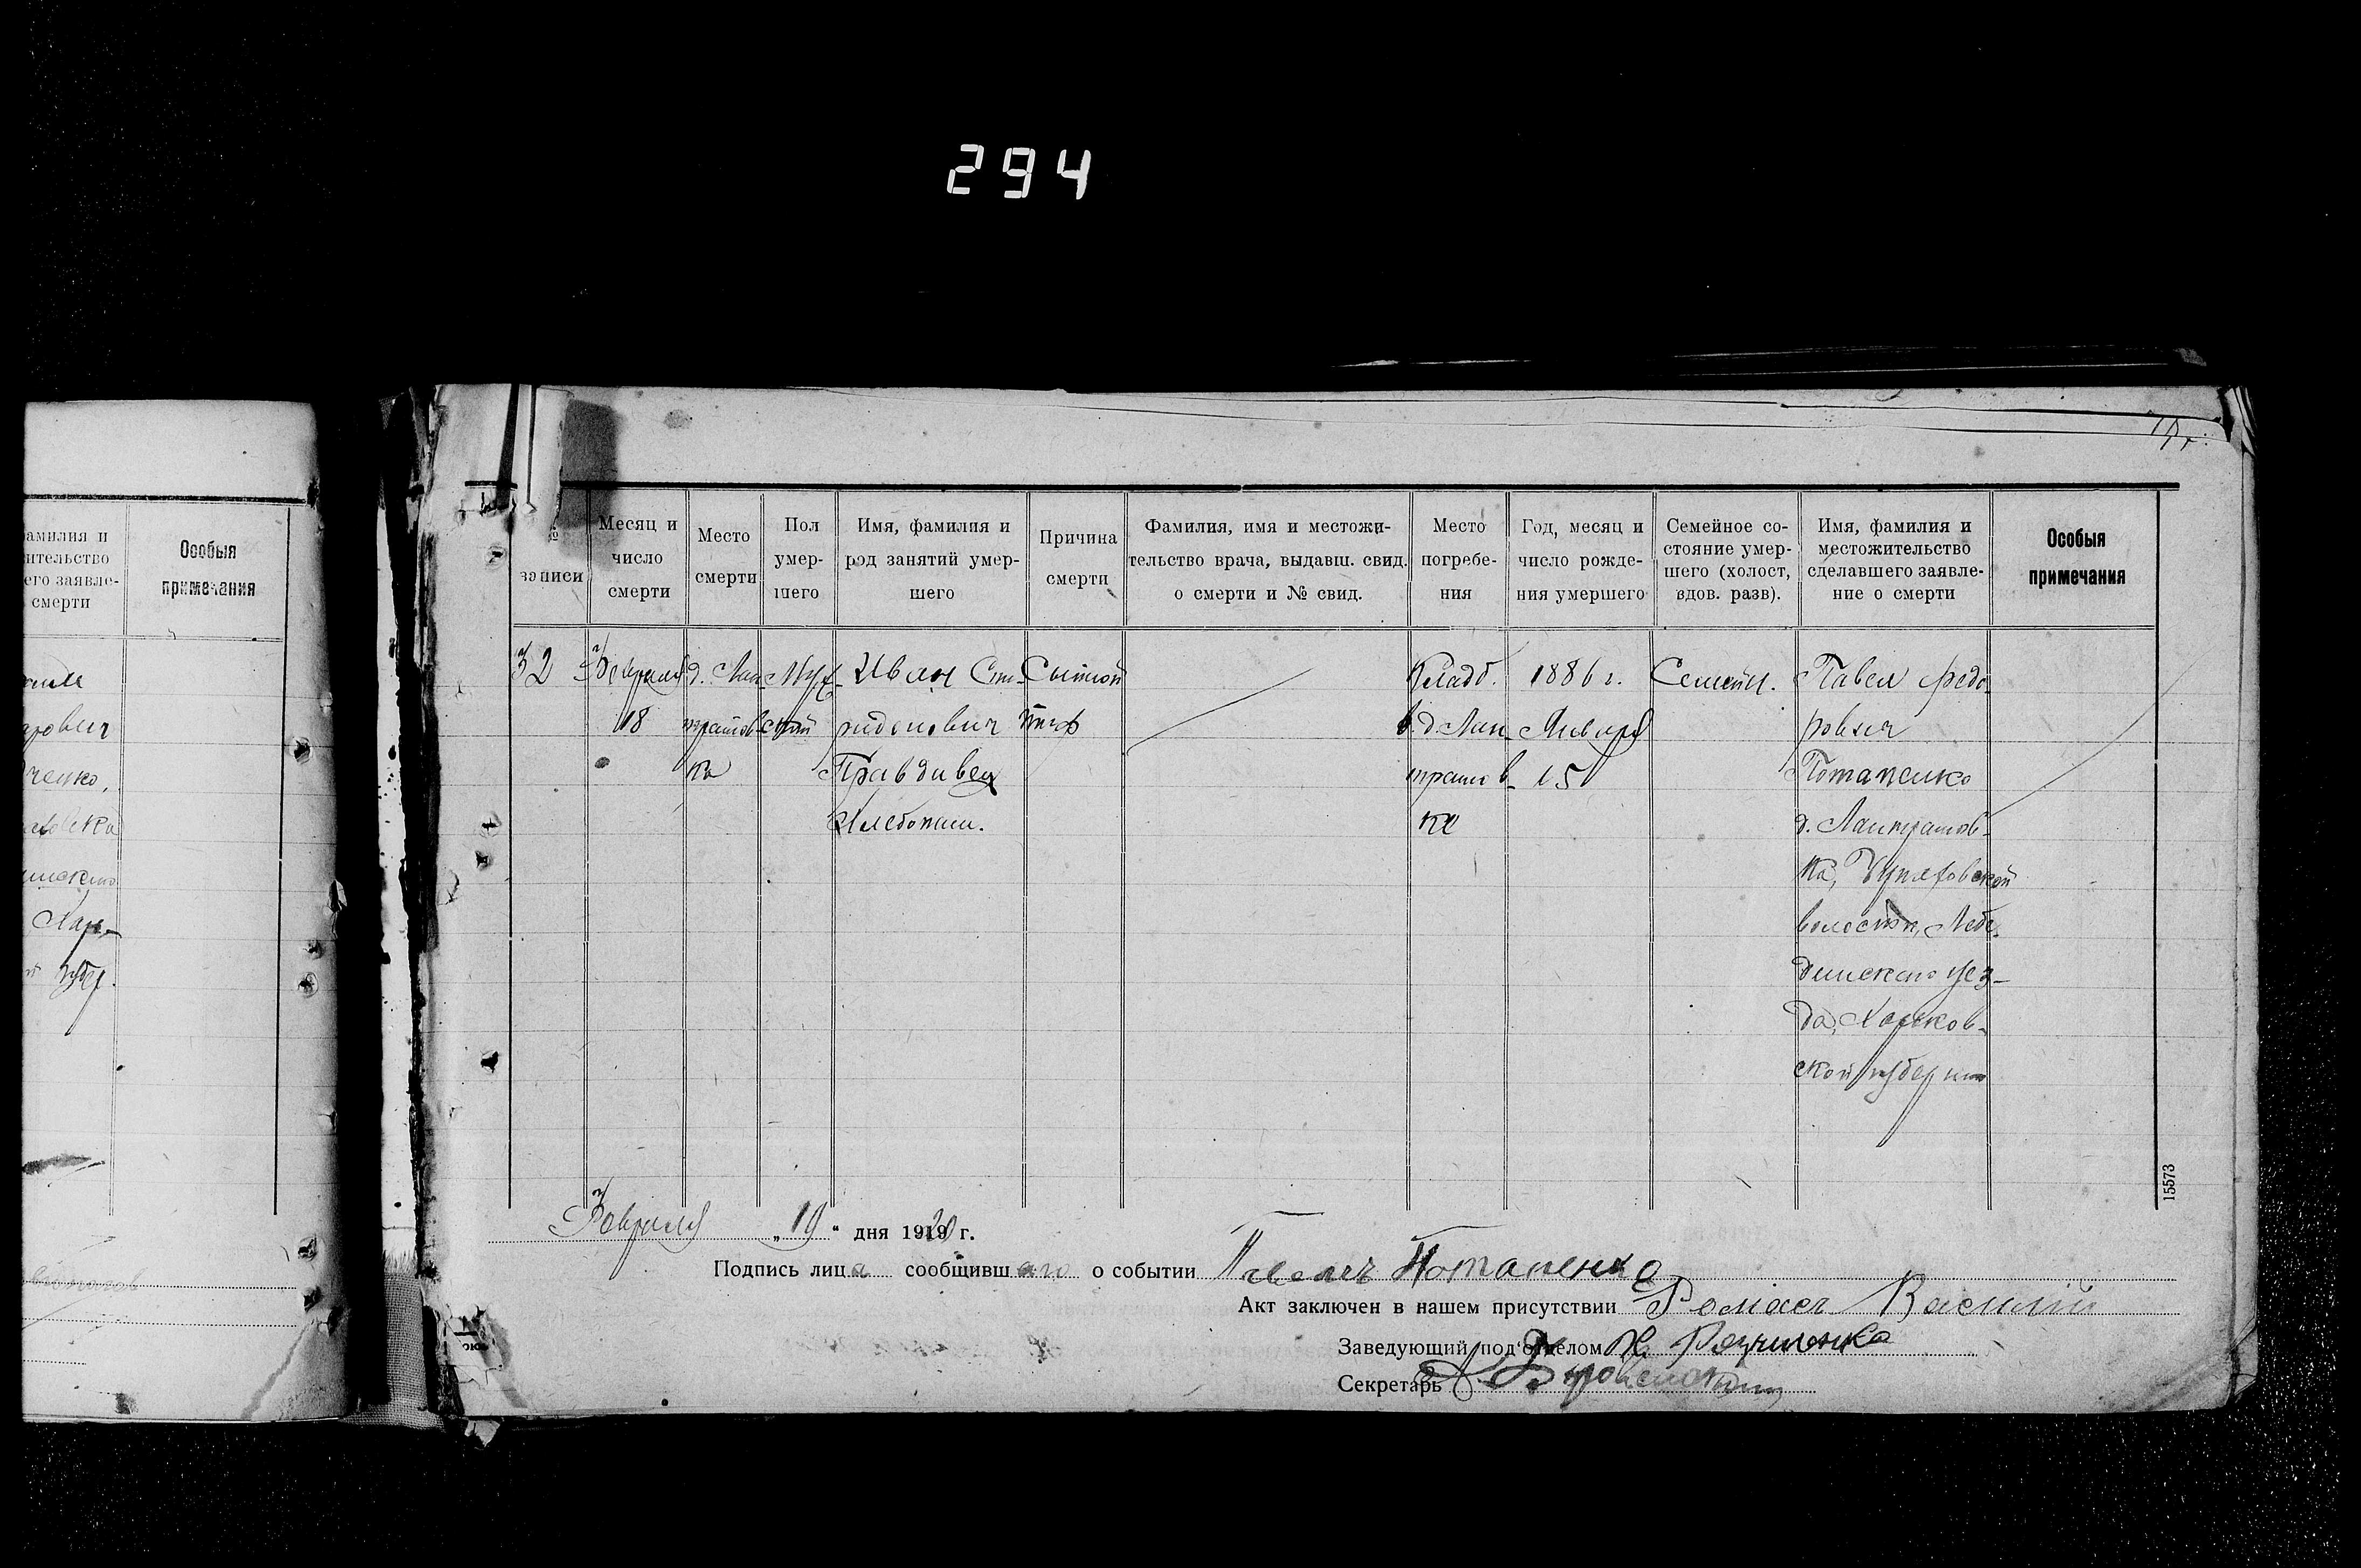 294
амилия и
ительство
его заявле-
смерти
Особыя
примечания
ченко,
Хар-
губер.
№
записи
Месяц и
число
смерти
Место
смерти
Пол
умер-
шего
Имя, фамилия и
род занятий умер-
шего
Причина
смерти
Фамилия, имя и местожи-
тельство врача, выдавш. свид.
о смерти и № свид.
Место
погребе-
ния
Год, месяц и
число рожде-
ния умершего
Семейное со-
стояние умер-
шего (холост,
вдов. разв).
Имя, фамилия и
местожительство
сделавшего заявле-
ние о смерти
Особыя
примечания
32
Февраля
18
д. Лан-
тратов-
ка
Муж-
ской
Иван Спи-
ридонович
Правдивец
Хлебопаш.
Сыпной
тиф
Кладб.
в д. Лан-
тратов-
ке
1886 г.
Января
15
Семейн.
Павел Федо-
рович
Потапенко
д. Лантратов-
ка, Чупаховской
волости, Лебе-
динского уез-
да, Харьков-
ской губернии
Февраля „19“ дня 1920 г.
Подпись лица сообщившаго о событии Потапенко
Акт заключен в нашем присутствии Ромаст Василий
Заведующий под'отделом
Секретарь
15573